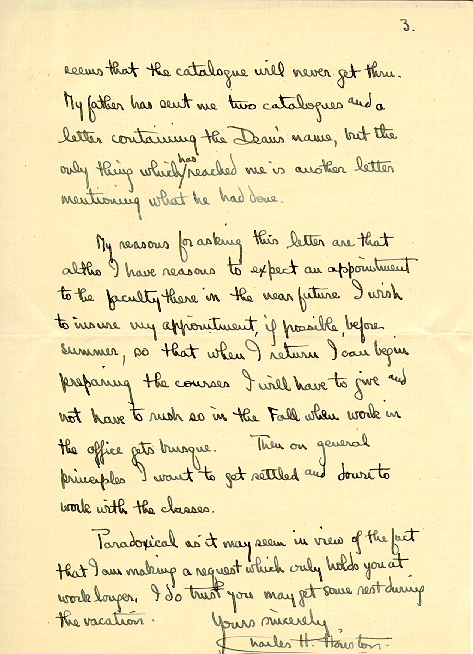 3.
seems that the catalogue will never get thru.
My father has sent me two catalogues and a
letter containing the Dean's name, but the
only thing which has reached me is another letter
mentioning what he had done.
My reasons for asking this letter are that
altho I have reasons to expect an appointment
to the faculty there in the near future I wish
to insure my appointment, if possible, before
summer, so that when I return I can begin
preparing the courses I will have to give and
not have to rush so in the Fall when work in
the office gets brusque. Then on general
principles I want to get settled and down to
work with the classes.
Paradoxical as it may seem in view of the fact
that I am making a request which only holds you at
work longer, I do trust you may get some rest during
the vacation. Yours sincerely
Charles H. Houston.